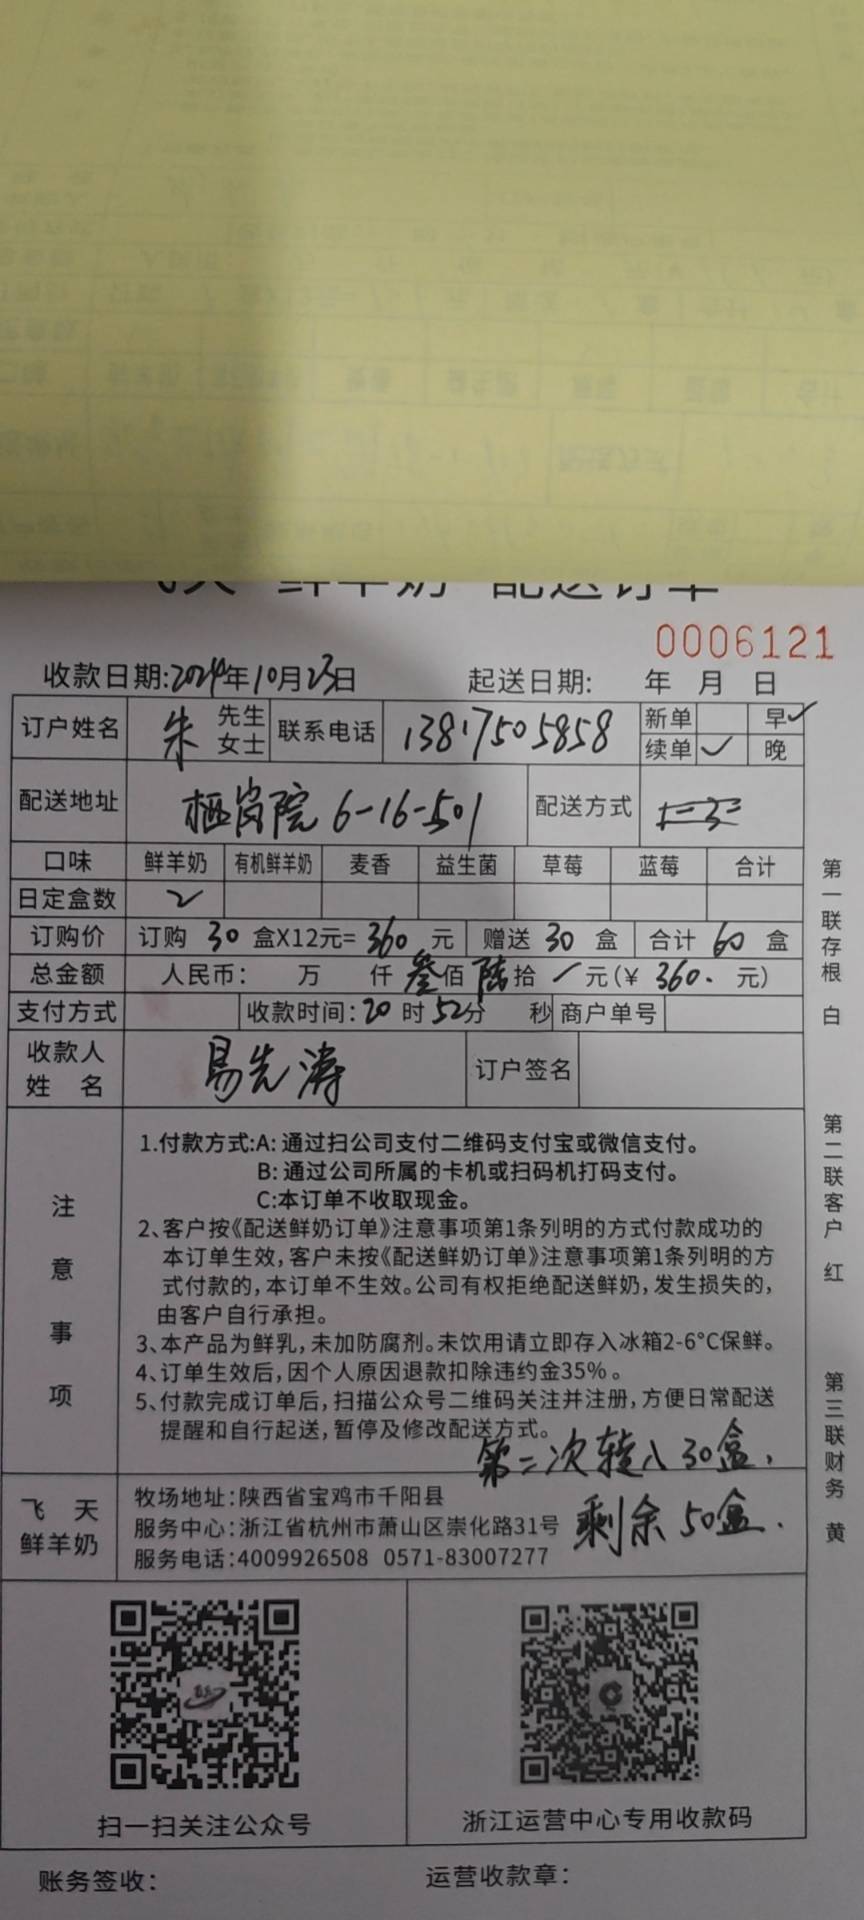 飞天"鲜羊奶"配送订单
0006121
收款日期:2024年10月23日 起送日期: 年 月 日
订户姓名 朱 先生 女士 联系电话 13817505858 新单 早✓
续单 ✓ 晚
配送地址 栖岗院 6-16-501 配送方式
口味 鲜羊奶 有机鲜羊奶 麦香 益生菌 草莓 蓝莓 合计
日定盒数 2
订购价 订购 30 盒X12元= 360 元 赠送 30 盒 合计 60 盒
总金额 人民币: 万 仟 叁佰 陆拾 / 元(¥ 360. 元)
支付方式 收款时间:20 时 52分 秒 商户单号
收款人
姓 名 易先涛 订户签名
注意事项
1.付款方式:A: 通过扫公司支付二维码支付宝或微信支付。
B: 通过公司所属的卡机或扫码机打码支付。
C:本订单不收取现金。
2、客户按《配送鲜奶订单》注意事项第1条列明的方式付款成功的
本订单生效,客户未按《配送鲜奶订单》注意事项第1条列明的方
式付款的,本订单不生效。公司有权拒绝配送鲜奶,发生损失的,
由客户自行承担。
3、本产品为鲜乳,未加防腐剂。未饮用请立即存入冰箱2-6°C保鲜。
4、订单生效后,因个人原因退款扣除违约金35%。
5、付款完成订单后,扫描公众号二维码关注并注册,方便日常配送
提醒和自行起送,暂停及修改配送方式。
第二次转入30盒.
剩余50盒.
飞 天
鲜羊奶
牧场地址:陕西省宝鸡市千阳县
服务中心:浙江省杭州市萧山区崇化路31号
服务电话:4009926508 0571-83007277
扫一扫关注公众号 浙江运营中心专用收款码
账务签收: 运营收款章:
第一联存根 白
第二联客户 红
第三联财务 黄